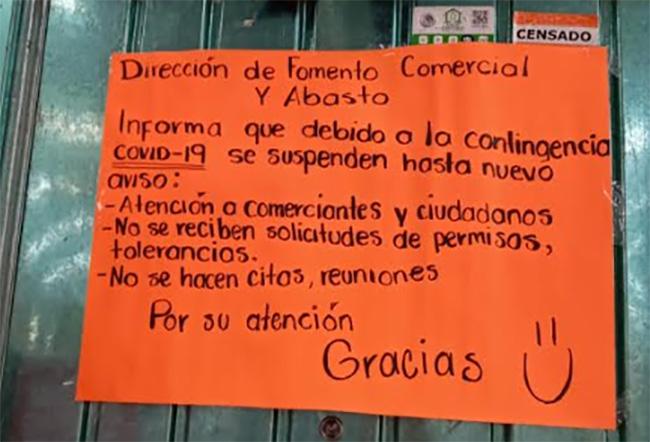 CENSADO
Dirección de Fomento Comercial
Y Abasto
Informa que debido a la contingencia
COVID-19 se suspenden hasta nuevo
aviso:
-Atención a comerciantes y ciudadanos
-No se reciben solicitudes de permisos,
tolerancias.
-No se hacen citas, reuniones
Por su atención
Gracias